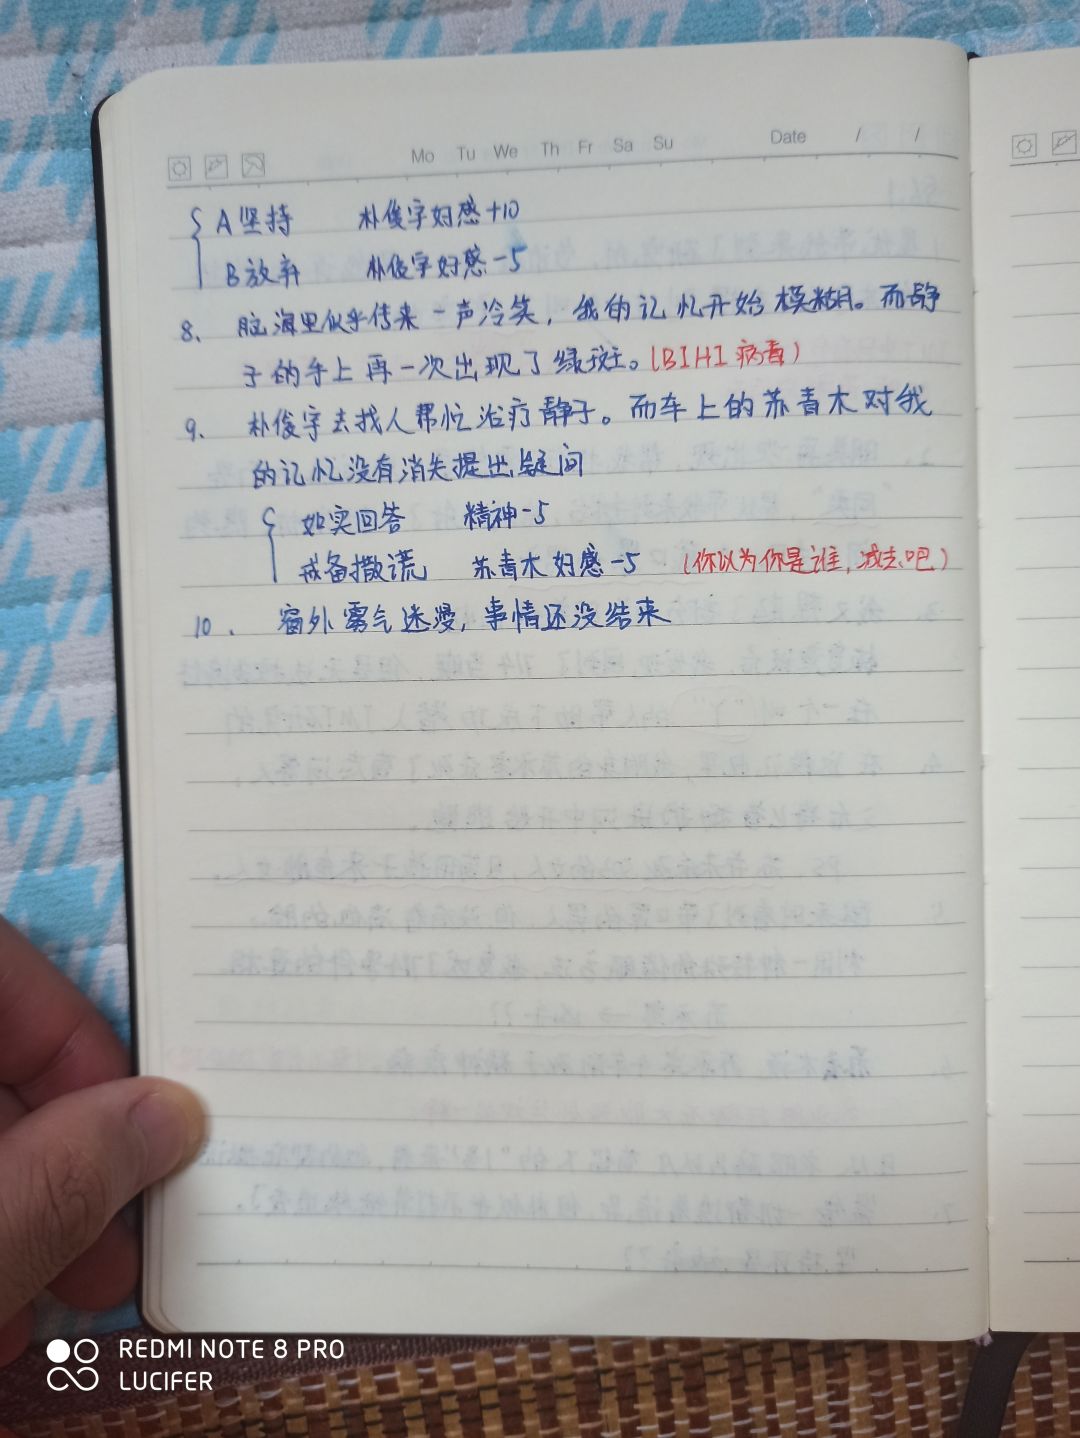 Mo Tu We Th Fr Sa Su Date / /
A 坚持 朴俊宇好感+10
B 放弃 朴俊宇好感-5
8、脑海里似乎传来一声冷笑，我的记忆开始模糊。而静
子的手上再一次出现了绿斑。(BIHI 病毒)
9、朴俊宇去找人帮忙治疗静子。而车上的苏青木对我
的记忆没有消失提出疑问
如实回答 精神-5
戒备撒谎 苏青木好感-5 (你以为你是谁，减去吧)
10、窗外雾气迷漫，事情还没结束
REDMI NOTE 8 PRO
LUCIFER